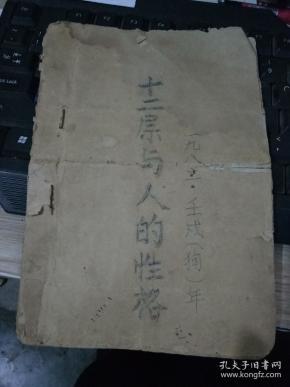 十二属与人的性格
一九八二·壬戌(狗)年
孔夫子旧书网